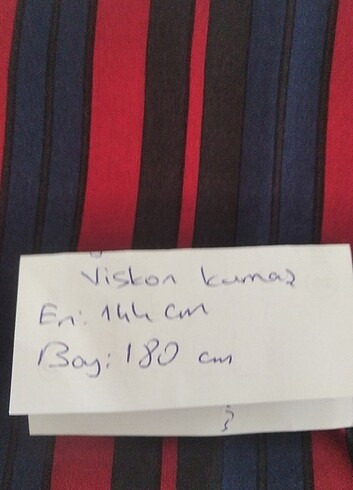 Viskon kumaş
En: 144 cm
Boy: 180 cm